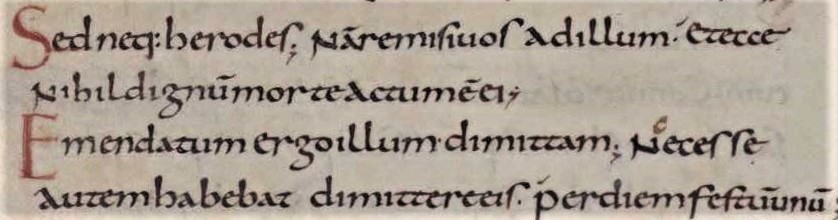 Sed neq: herodes; Nā remisi uos ad illum. Et ecce
Nihil dignū morte actum ē ei;
Emendatum ergo illum dimittam; Necesse
autem habebat dimittere eis. per diem festū unū